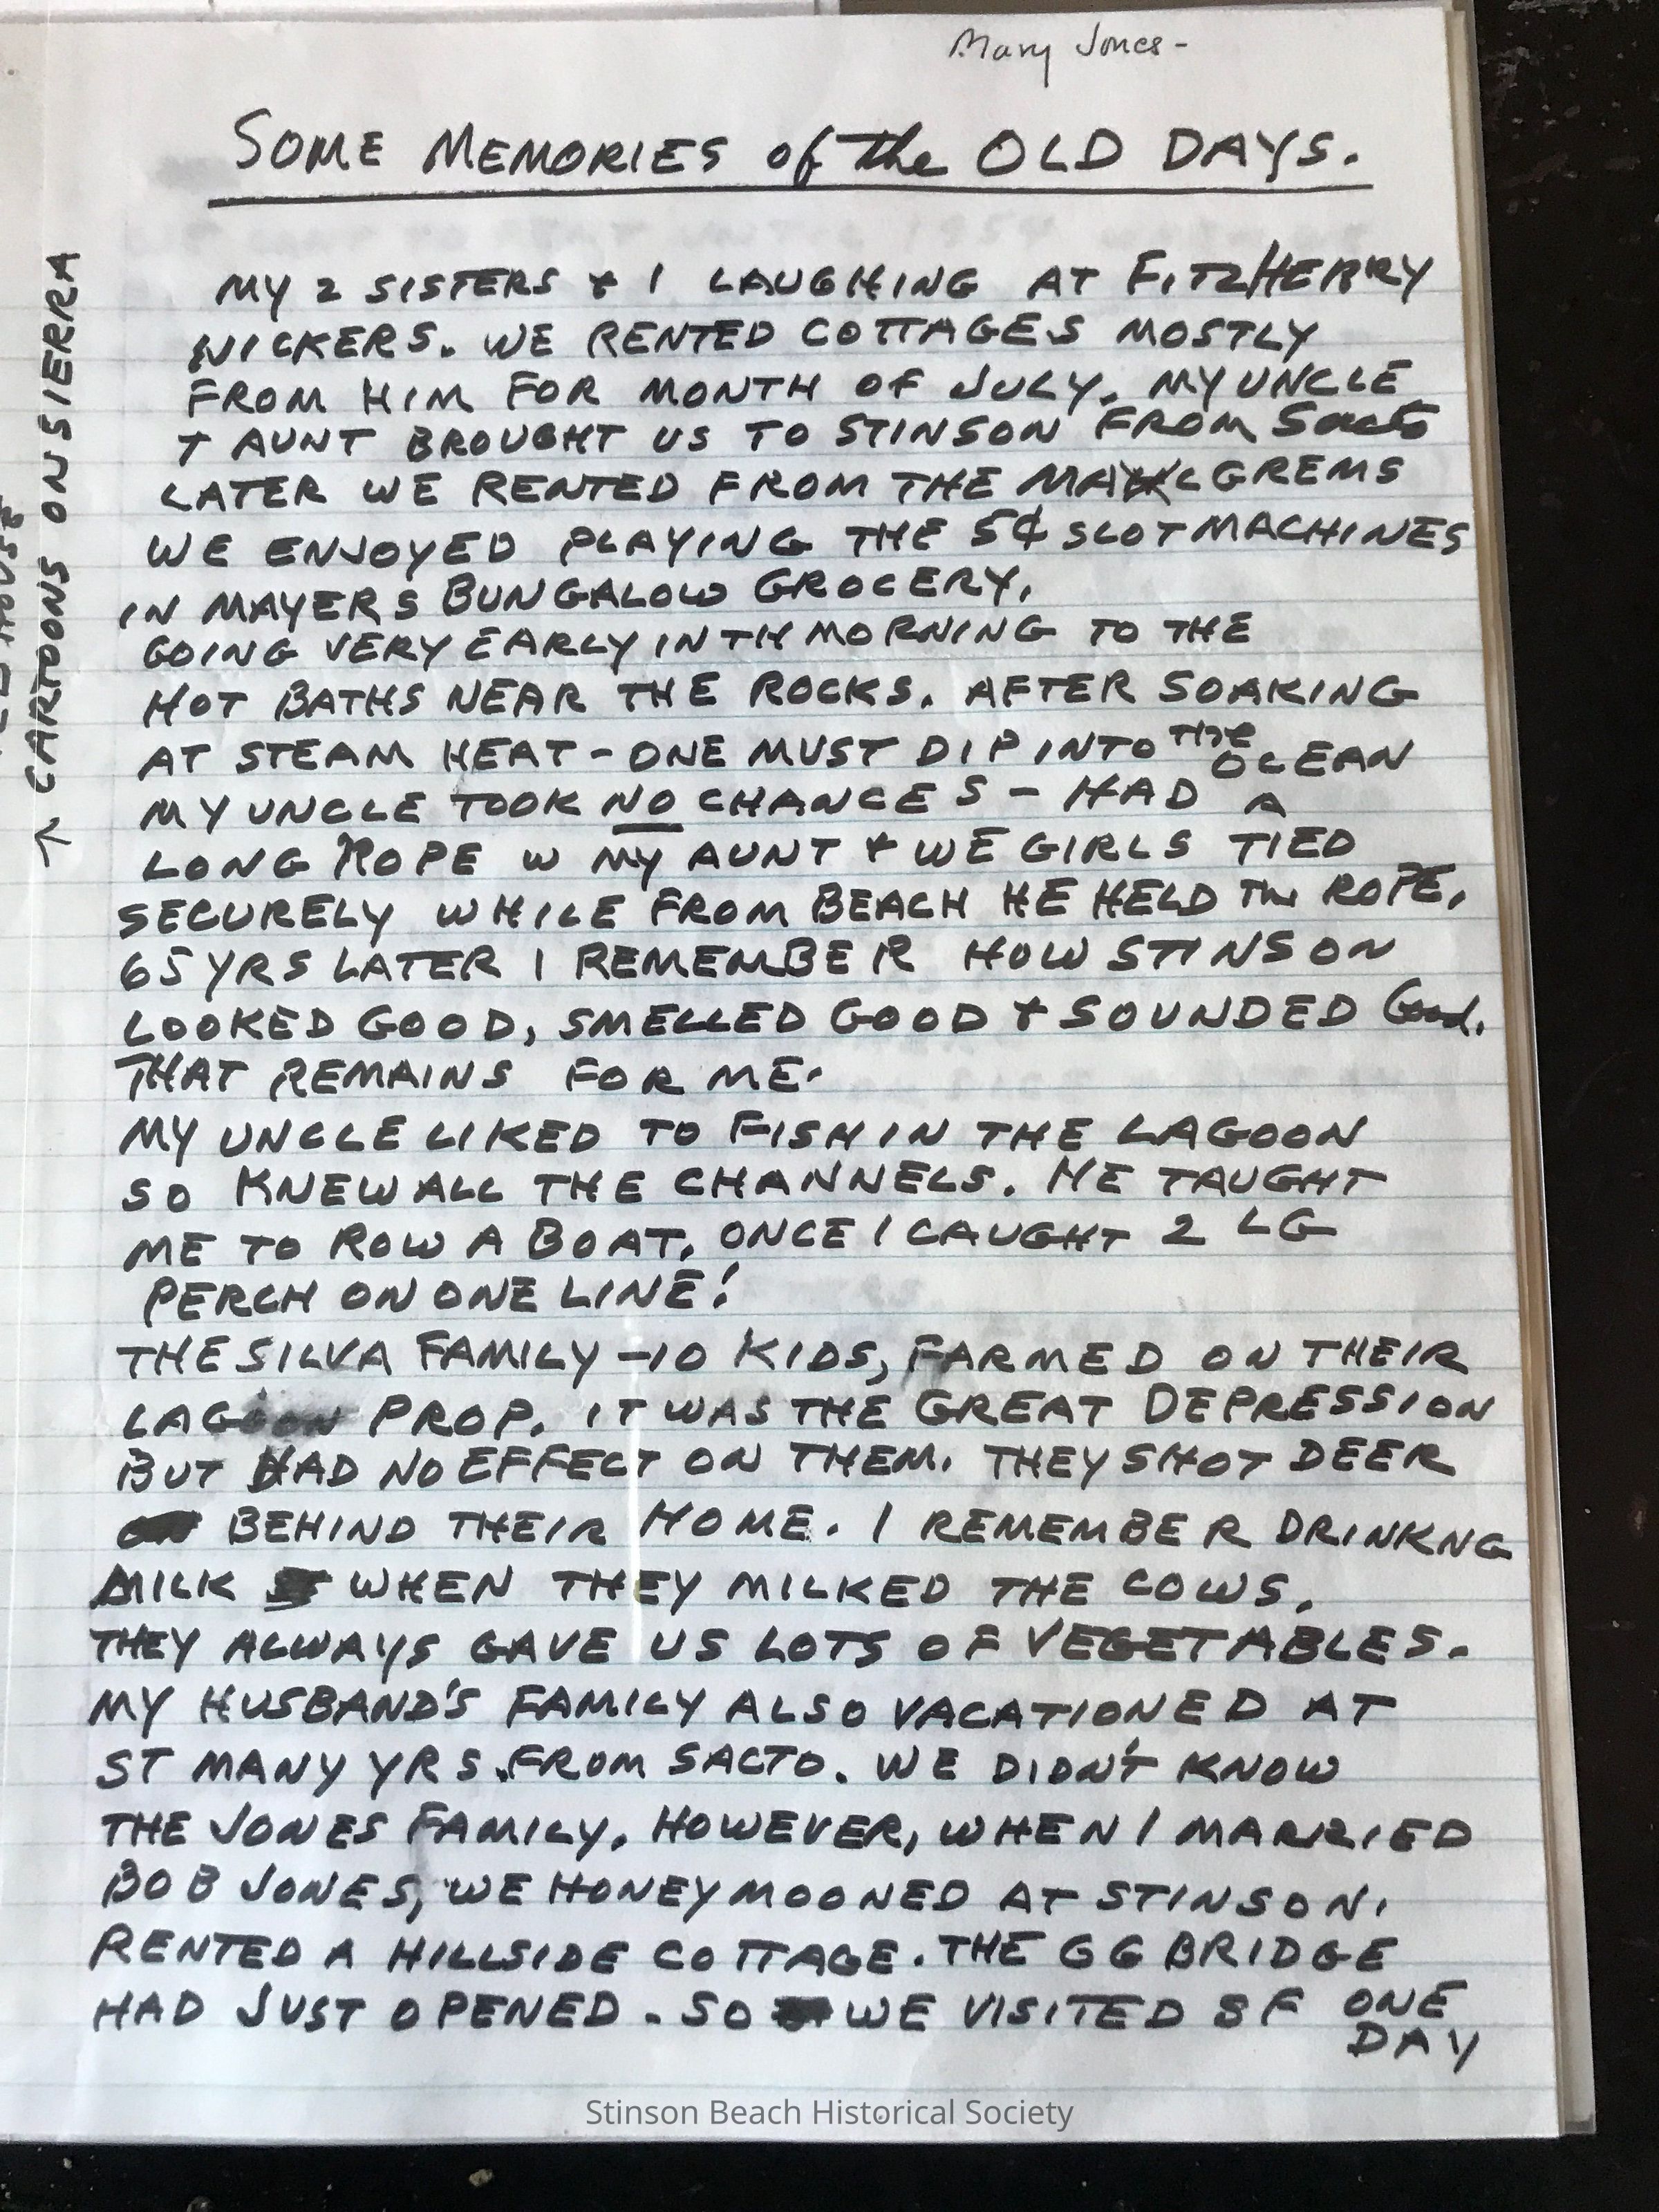 Mary Jones-
SOME MEMORIES of the OLD DAYS.
MY 2 SISTERS + I LAUGHING AT FITZHENRY
NICKERS. WE RENTED COTTAGES MOSTLY
FROM HIM FOR MONTH OF JULY. MY UNCLE
+ AUNT BROUGHT US TO STINSON FROM Sacto
LATER WE RENTED FROM THE GREMS
WE ENJOYED PLAYING THE 5¢ SLOT MACHINES
IN MAYERS BUNGALOW GROCERY.
GOING VERY EARLY IN TH MORNING TO THE
HOT BATHS NEAR THE ROCKS. AFTER SOAKING
AT STEAM HEAT - ONE MUST DIP INTO THE OCEAN
MY UNCLE TOOK NO CHANCES - HAD A
LONG ROPE W MY AUNT + WE GIRLS TIED
SECURELY WHILE FROM BEACH HE HELD THE ROPE.
65 YRS LATER I REMEMBER HOW STINSON
LOOKED GOOD, SMELLED GOOD + SOUNDED Good.
THAT REMAINS FOR ME.
MY UNCLE LIKED TO FISH IN THE LAGOON
SO KNEW ALL THE CHANNELS. HE TAUGHT
ME TO ROW A BOAT. ONCE I CAUGHT 2 LG
PERCH ON ONE LINE!
THE SILVA FAMILY - 10 KIDS, FARMED ON THEIR
LAGOON PROP. IT WAS THE GREAT DEPRESSION
BUT HAD NO EFFECT ON THEM. THEY SHOT DEER
BEHIND THEIR HOME. I REMEMBER DRINKNG
MILK WHEN THEY MILKED THE COWS.
THEY ALWAYS GAVE US LOTS OF VEGETABLES.
MY HUSBAND'S FAMILY ALSO VACATIONED AT
ST MANY YRS. FROM SACTO. WE DIDN'T KNOW
THE JONES FAMILY. HOWEVER, WHEN I MARRIED
BOB JONES, WE HONEYMOONED AT STINSON.
RENTED A HILLSIDE COTTAGE. THE GG BRIDGE
HAD JUST OPENED. SO WE VISITED SF ONE
DAY
← CARTOONS ON SIERRA
HOUSE
Stinson Beach Historical Society